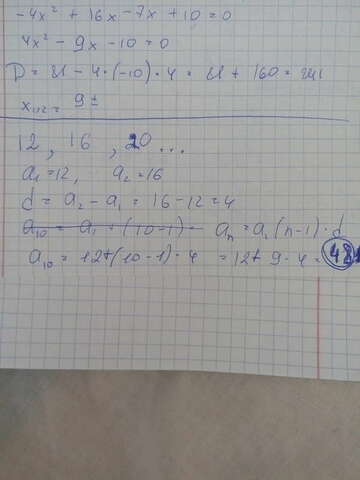 -4x² + 16x - 7x + 10 = 0
4x² - 9x - 10 = 0
D = 81 - 4·(-10)·4 = 81 + 160 = 241
x₁,₂ = 9 ±
12, 16, 20...
a₁=12, a₂=16
d = a₂ - a₁ = 16 - 12 = 4
a₁₀ = a₁ + (10-1)· aₙ = a₁(n-1)·d
a₁₀ = 12+(10-1)·4 = 12+9·4=48